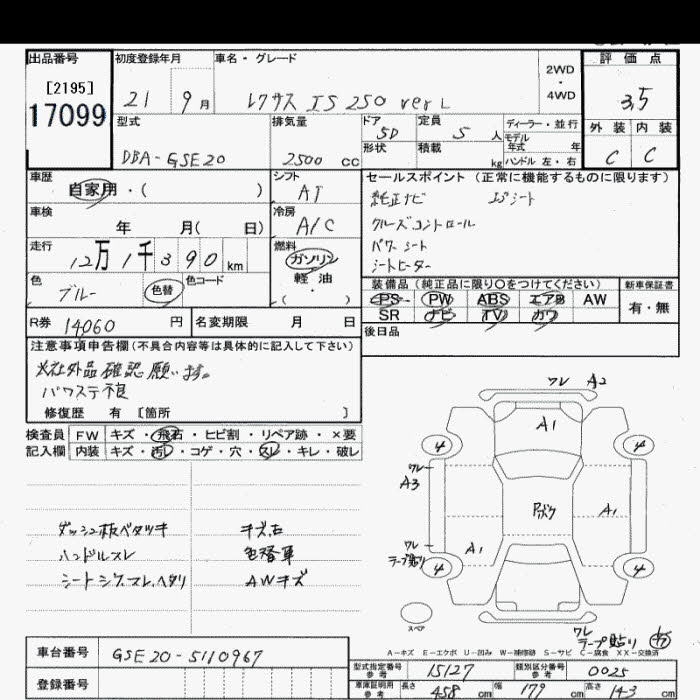 出品番号 初度登録年月 車名・グレード 評価点
[2195]
17099
21 9月 レクサス IS 250 ver L 2WD ・ 4WD 3.5
型式 排気量 ドア 5D 定員 5人 ディーラー・並行 外装 内装
DBA-GSE20 2500cc 形状 積載 kg モデル年式 年 ハンドル 左・右 C C
車歴 シフト セールスポイント (正常に機能するものに限ります)
自家用・( ) AT 純正ナビ シート
車検 冷房 クルーズコントロール
年 月( 日) A/C パワーシート
走行 燃料 シートヒーター
12万1千390km ガソリン
軽油・( )
色 色コード 装備品 (純正品に限り○をつけてください) 新車保証書
ブルー 色替 PS PW ABS エアB AW 有・無
SR ナビ TV カワ
R券 14060円 名変期限 月 日 後日品
注意事項申告欄(不具合内容等は具体的に記入して下さい)
※社外品確認願います。
パワステ不良
修復歴 有 [箇所 ]
検査員 FW キズ・飛石・ヒビ割・リペア跡・×要
記入欄 内装 キズ・汚レ・コゲ・穴・スレ・キレ・破レ
ワレ A2
A1
4 4
ワレ
A3
Pボク A1
A1
ワレ
テープ貼り
4 4
ダッシュ板ベタツキ キズ凸
ハンドルスレ 色替車
シートシワ、スレ、ヘタリ AWキズ
スペア
ワレ
テープ貼り
A-キズ E-エクボ U-凹み W-補修跡 S-サビ C-腐食 XX-交換済
車台番号 GSE20-5110967
登録番号
型式指定番号 参考 15127 類別区分番号 参考 0025
車庫証明用 参考 長さ 458cm 幅 179cm 高さ 143cm